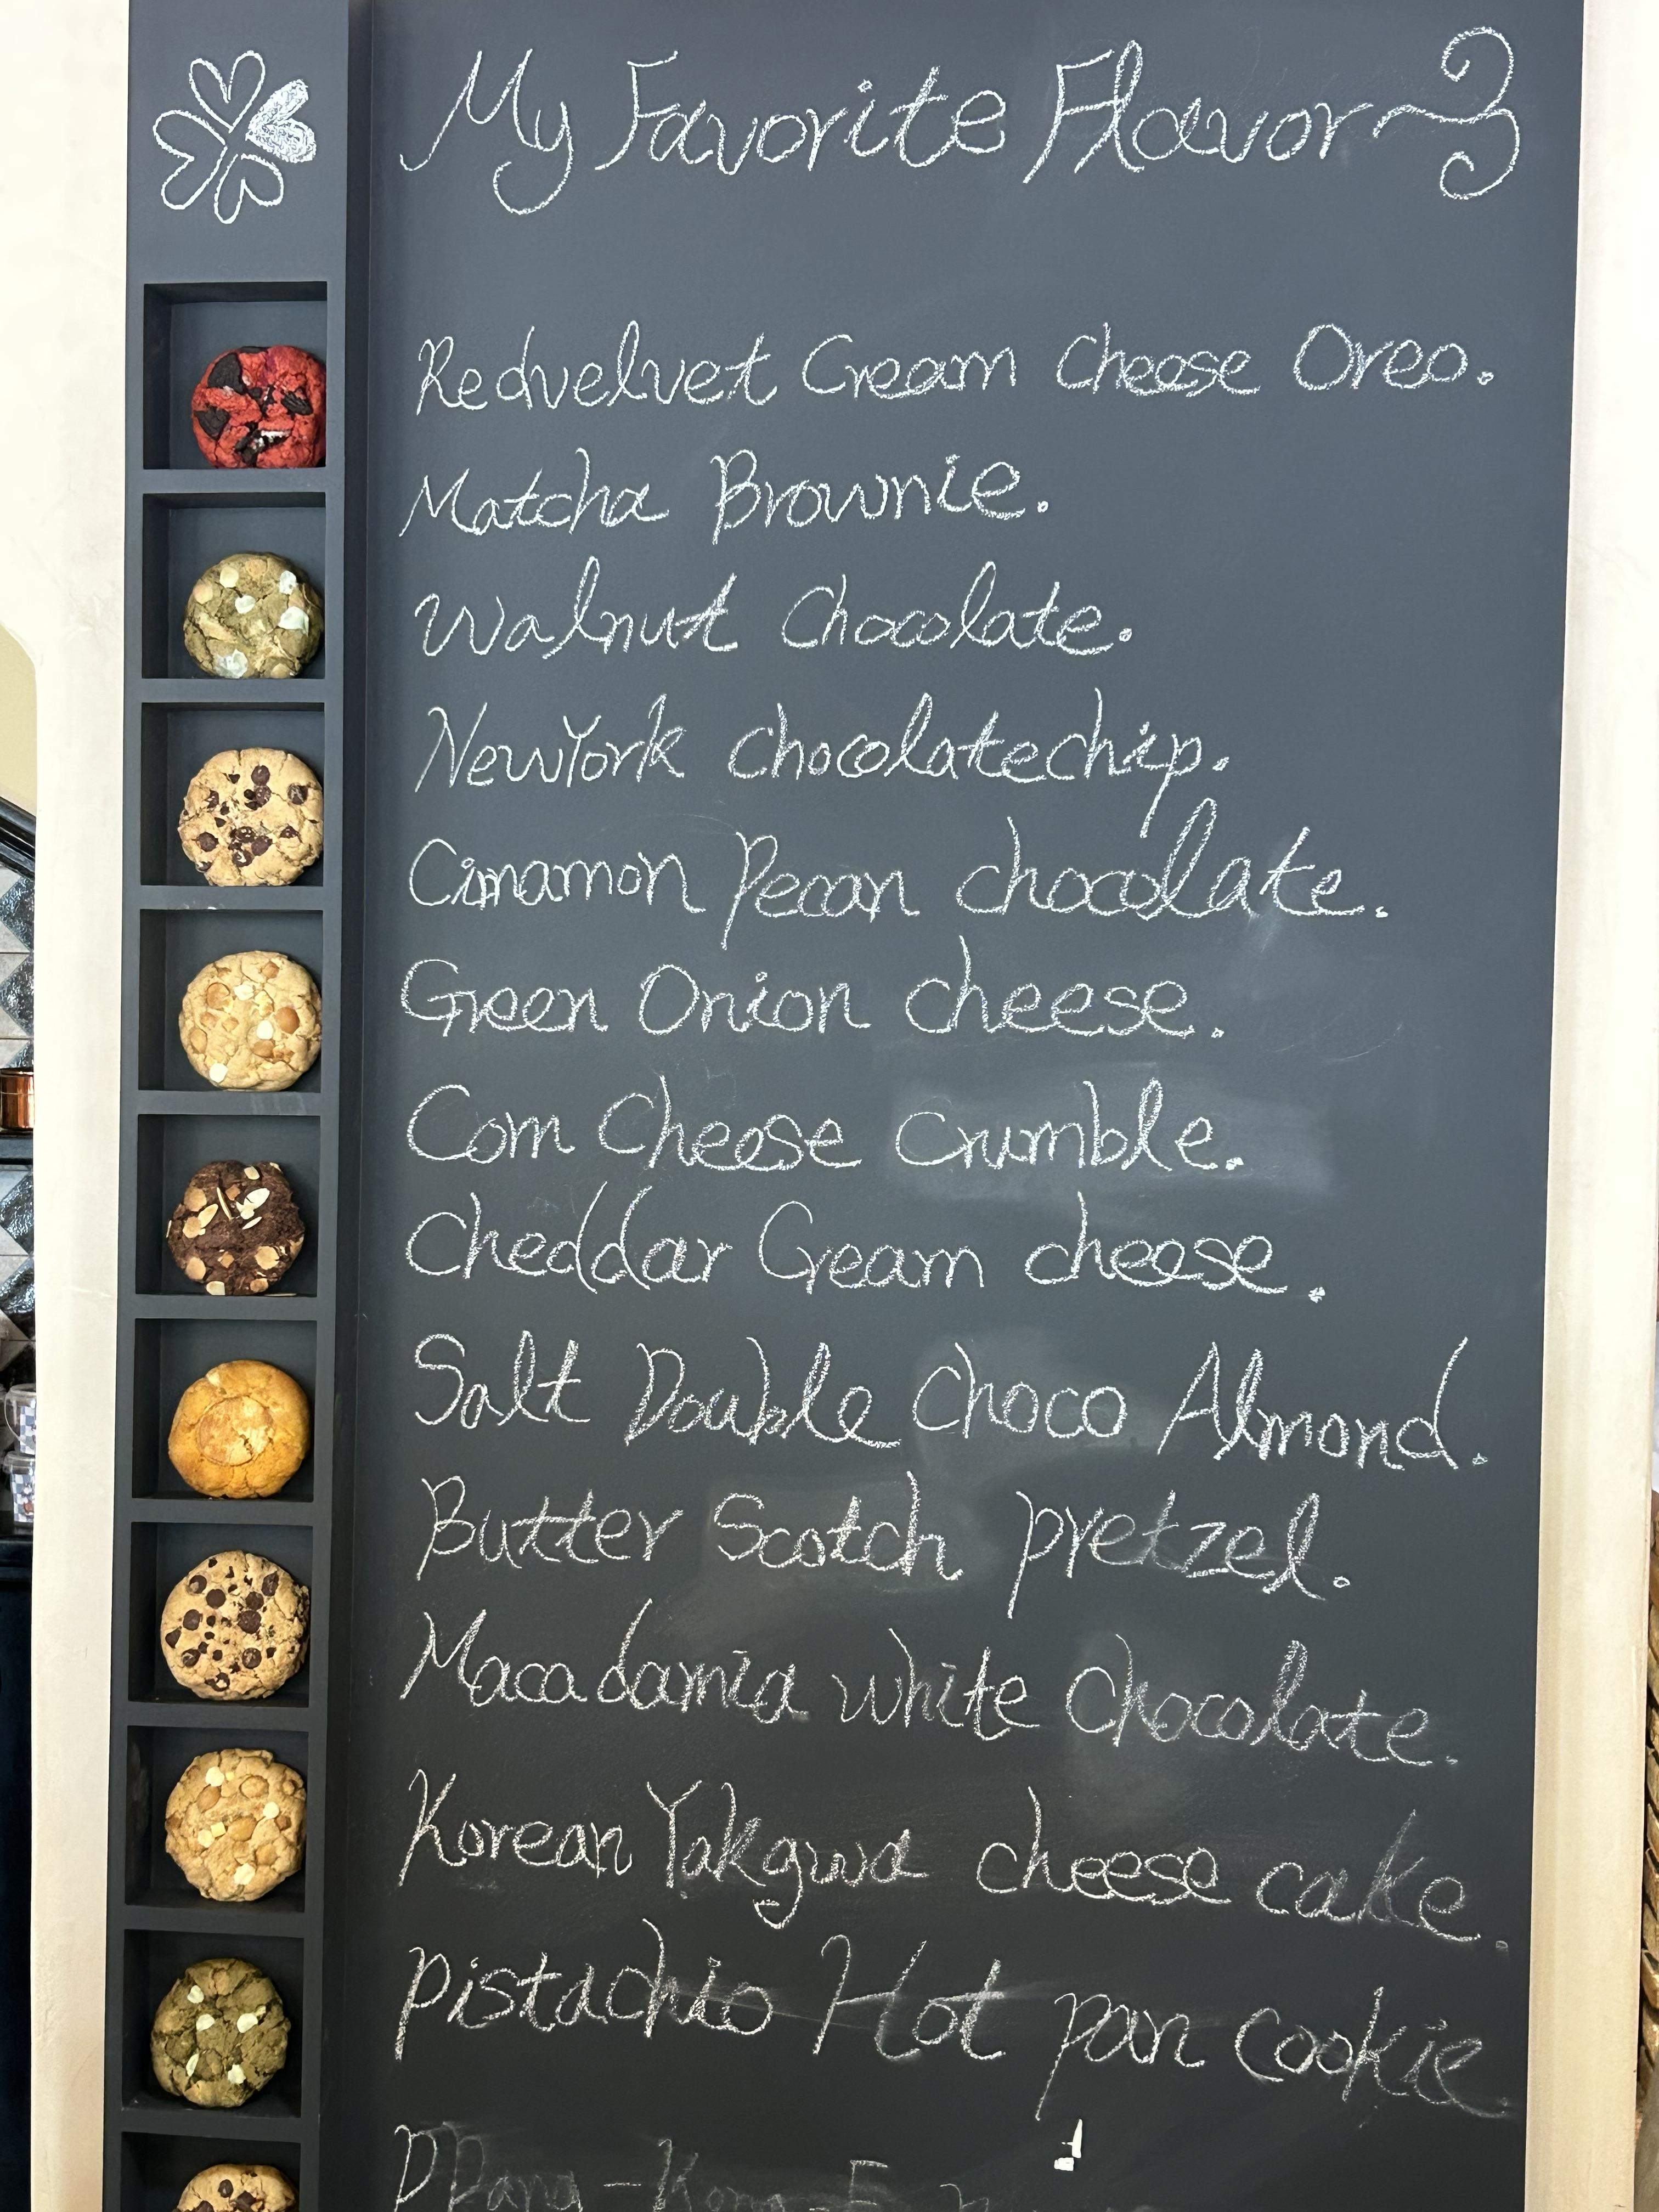 My Favorite Flavor
Redvelvet Cream Cheese Oreo.
Matcha Brownie.
Walnut Chocolate.
NewYork chocolatechip.
Cinamon Pecan chocolate.
Green Onion cheese.
Corn Cheese Crumble.
Cheddar Cream cheese.
Salt Double Choco Almond.
Butter Scotch pretzel.
Macadamia white Chocolate.
Korean Yakgwa cheese cake.
Pistachio Hot pan cookie.